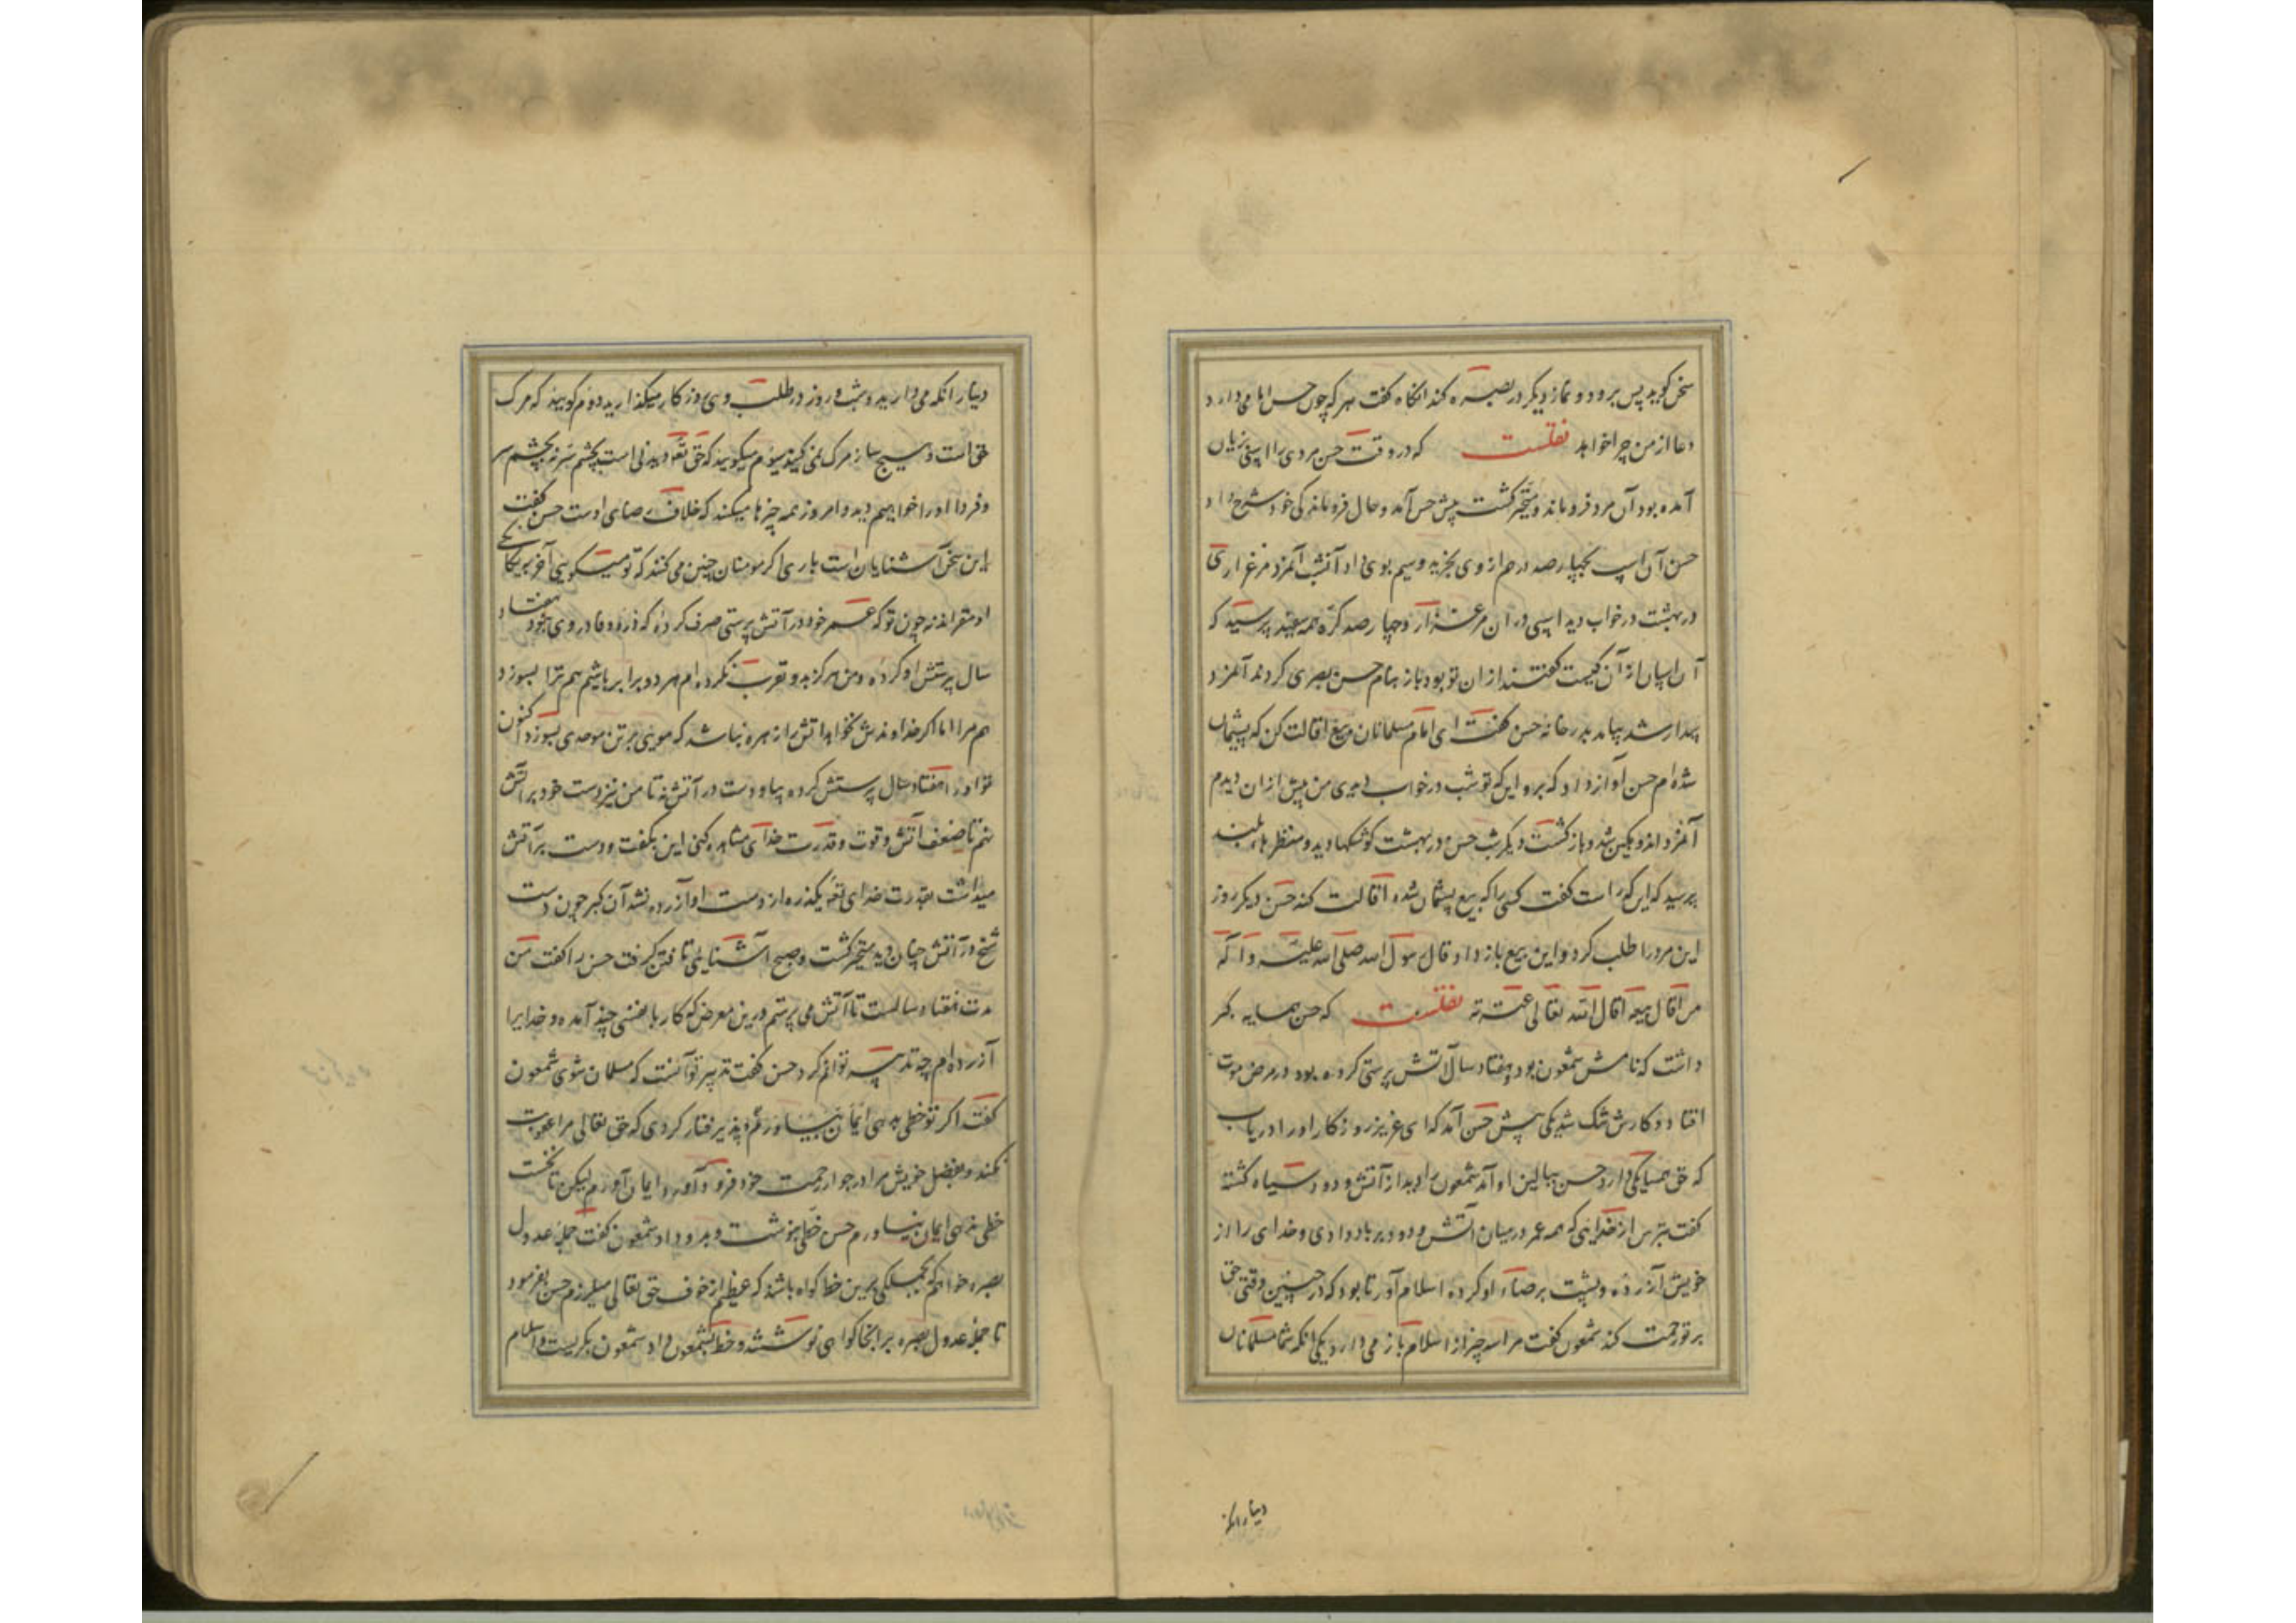 سخن گوید پس برود و نماز دیگر در بصره کند آنگاه گفت هر که چون حسن امامی دارد
دعا از من چرا خواهد نقلست که در وقت حسن مردی را اسپی بزیان
آمده بود آن مرد فروماند و متحیر گشت پیش حسن آمد و حال فروماندگی خود شرح داد
حسن آن اسپ بچهارصد درهم از وی بخرید و سیم بوی داد آنشب آنمرد مرغزاری
در بهشت در خواب دید اسپی در آن مرغزار و چهارصد کره همه سفید پرسید که
آن اسپان از آن کیست گفتند از ان تو بود باز بنام حسن بصری کردند آنمرد
بیدار شد بیامد بدر خانه حسن گفت ای امام مسلمانان بیع اقالت کن که پشیمان
شده ام حسن آواز داد که برو این که تو شب در خواب دیدی من پیش از ان دیدم
آنمرد اندوهگین شد و باز گشت دیگر شب حسن در بهشت کوشکها دید و منظرهاء بلند
پرسید که این کراست گفت کسی را که ببیع پشیمان شده اقالت کند حسن دیگر روز
این مرد را طلب کرد و این بیع باز داد و قال رسول الله صلی الله علیه و آله
من اقال بیعه اقال الله تعالی عثرته نقلست که حسن همسایه گبر
داشت که نامش شمعون بود و هفتاد سال آتش پرستی کرده بود در مرض موت
افتاد و کارش تنگ شد یکی پیش حسن آمد که ای عزیز روزگار او را دریاب
که حق همسایگی دارد حسن ببالین او آمد شمعون را دید از آتش و دود سیاه گشته
گفت بترس از خدایی که همه عمر در میان آتش و دود بر باد دادی و خدای را از
خویش آزرده و پشت برضاء او کرده اسلام آور تا بود که در چنین وقتی حق
بر تو رحمت کند شمعون گفت مرا سه چیز از اسلام باز می دارد یکی آنکه شما مسلمانان
دنیا را نکه
دنیا را نکه می دارید و شب و روز در طلب وی روزگار میگذارید دوم گویند که مرگ
حق است و بسیج ساز مرگ نمی کنید سیوم میگویید که حق تعالی دیدنی است بچشم سر نه بچشم سر
و فردا او را خواهیم دید و امروز همه چیزها میکنند که خلاف رضای اوست حسن گفت
این سخن آشنایان است باری اگر مومنان چنین می کنند که تو میگویی آخر بیگانگی
او مقراند نه چون تو که عمر خود در آتش پرستی صرف کرده که ذره وفا در وی نبود هفتاد
سال پرستش او کرده و من هرگز بدو تقرب نکرده ام هر دو برابر باشیم هم ترا بسوزد
هم مرا اما اگر خداوندش نخواهد آتش را زهره نباشد که مویی بر تن موحدی بسوزد اکنون
تو او را هفتاد سال پرستش کرده بیا و دست در آتش نه تا من نیز دست خود بر آتش
نهم تا ضعف آتش و قوت و قدرت خدای مشاهده کنی این بگفت و دست بر آتش
میداشت بقدرت خدای تعالی یکذره از دست او آزرده نشد آن گبر چون دست
شیخ در آتش چنان دید متحیر گشت و صبح آشنایی تافتن گرفت حسن را گفت من
مدت هفتاد سالست تا آتش می پرستم درین معرض که کار با نفسی چند آمده و خدا یرا
آزرده ام چه تدبیر توانم کرد حسن گفت تدبیر تو آنست که مسلمان شوی شمعون
گفت اگر تو خطی بدهی ایمان بیاورم و پذیرفتار کردی که حق تعالی مرا عقوبت
نکند و بفضل خویش مرا در جوار رحمت خود فرود آورد ایمان آورم لیکن تا نخست
خطی ندهی ایمان نیاورم حسن خطی بنوشت و بدو داد شمعون گفت جمله عدول
بصره خواهم که جملگی برین خط گواه باشند که عظیم از خوف حق تعالی میلرزم حسن بفرمود
تا جمله عدول بصره بر آنجا گواهی نوشتند و خط بشمعون داد شمعون بگریست و اسلام